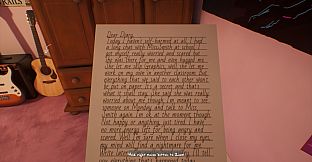 Dear Diary,
Today I haven't self-harmed at all. I had
a long chat with Miss Smith at school. I
got myself really worried and scared but
she was there for me and even hugged me.
She let me skip Graphics, well she let me
work on my own in another classroom. But
everything that we said to each other wont
be put on paper. It's a secret and that's
what it shall stay. She said she was really
worried about me though. I'm meant to see
someone on Monday and talk to Miss
Smith again. I'm ok at the moment though.
Not happy or anything, just tired. I have
no more energy left for being angry and
scared. Well I'm sure when I close my eyes
my mind will find a nightmare for me.